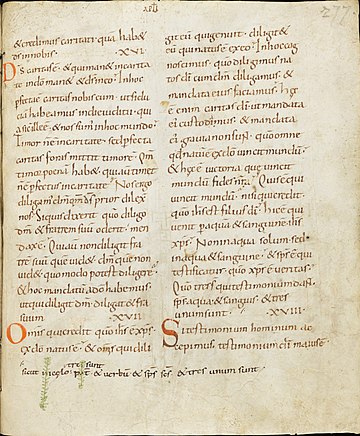 XVII
277
& credimus caritati· qua hab&
d̄s innobis· XVI·
D̄s caritas ÷· & qui man& incarita
te indō man& & d̄s ineo· Inhoc
pfecta ÷ caritas nobiscum· ut fidu
cia habeamus indie iudicii· qui
a sic ille ÷· & nos sum; inhoc mundo·
Timor n̄ ÷ incaritate· sed pfecta
caritas foras mittit timorē· Qm̄
timor poenā hab&· qui autē tim&
n̄ ÷ pfectus incaritate· Nos ergo
diligam; dm̄ qm̄ d̄s prior dilex
nos· Siquis dixerit quō diligo
dm̄· & fratrem suū oderit· men
dax ÷· Qui enī non diligit fra
trē suū quē uid&· dm̄ quē non
uid& quomodo potest diligere·
& hoc mandatū adō habemus·
ut qui diligit dm̄· diligat & fra
suum· XVII
Om̄is qui credit quō ih̄s ÷ xp̄s·
exdō natus ÷· & om̄s qui dili
git eū qui genuit· diligit &
eū qui natus ÷ exeo· Inhoc cog
noscimus· quō diligimus na
tos dī· cum dm̄ diligamus· &
mandata eius faciamus· Hęc
÷ enim caritas dī· ut mandata
ei; custodimus· & mandata
ei; grauia non sunt· quō omne
qd̄ natū ÷ exdō uincit mundū·
& hęc ÷ uictoria quę uincit
mundū fides nr̄a· Quis ÷ qui
uincit mundū· nisi qui credit·
quō ih̄s ÷ filius dī· Hic ÷ qui
uenit p aqua & sanguine ih̄s
xp̄s· Non in aqua solum· sed
in aqua & sanguine· & sp̄s ÷ qui
testificatur quō xp̄s ÷ ueritas·
Quō tres st̄ qui testimoniū dant·
sp̄s· aqua & sanguis· & tres
unum sunt· XVIII·
Si testimonium hominum ac
cepimus· testimoniū dī mai; ÷·
sicut in cęlo tres sunt pat̄ & verbū & sp̄s sc̄s & tres unum sunt·